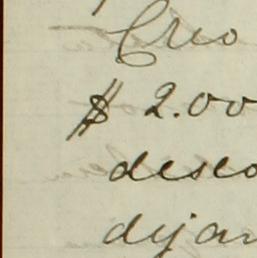 Creo
$2.00
deseo
dejar